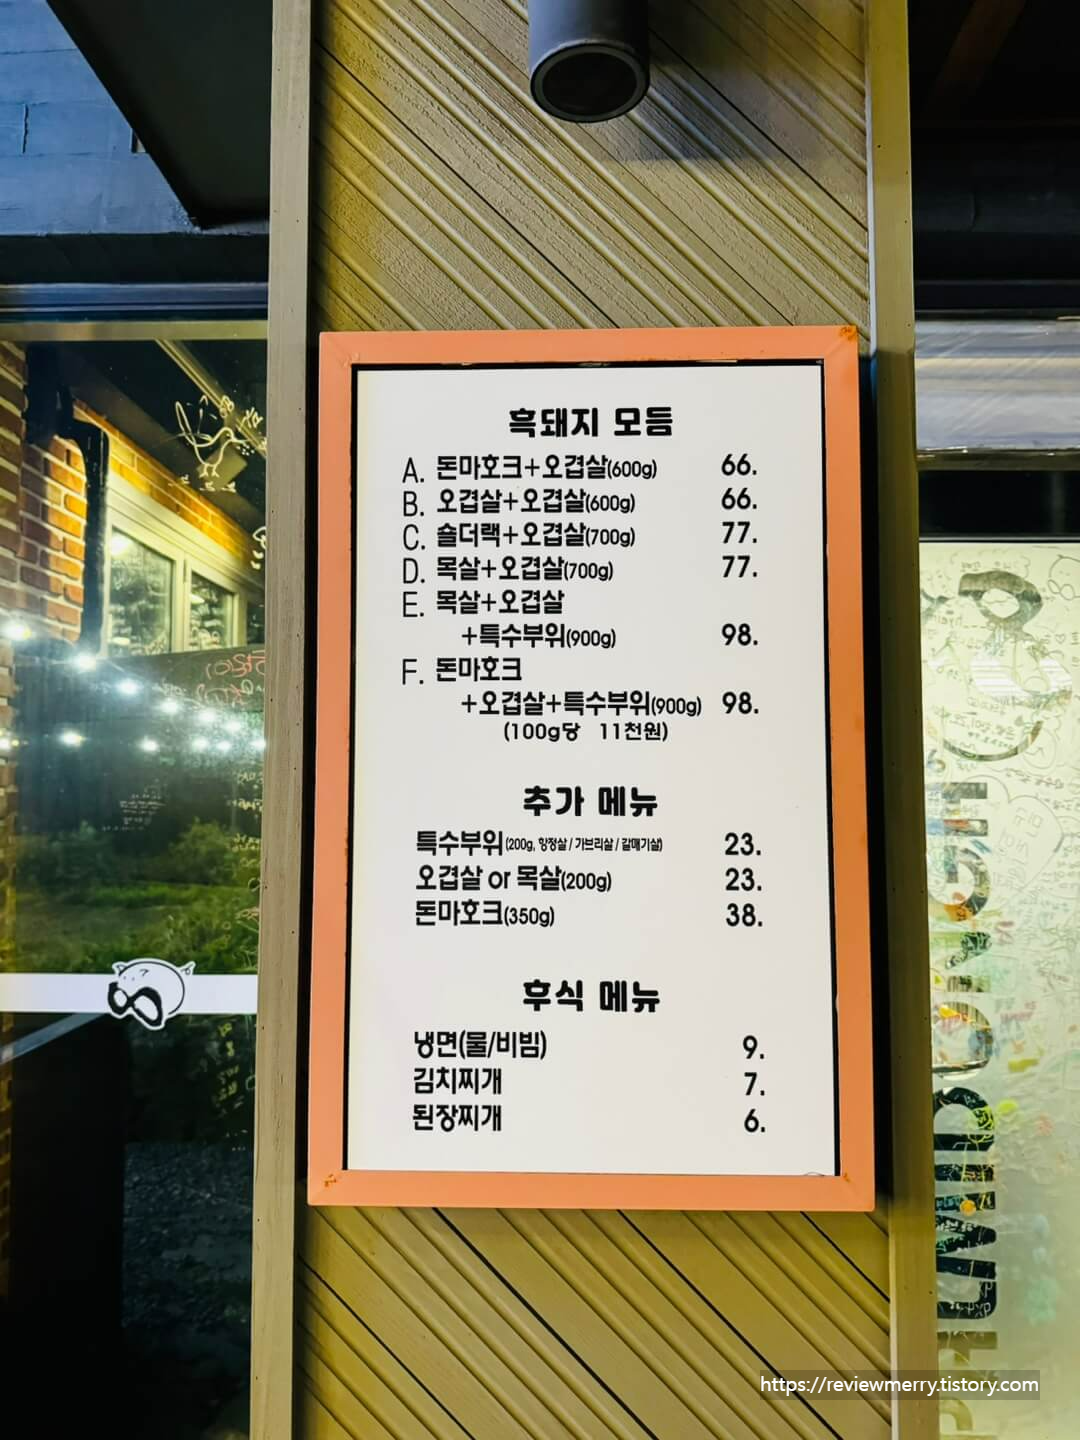 흑돼지 모듬
A. 돈마호크+오겹살(600g) 66.
B. 오겹살+오겹살(600g) 66.
C. 숄더랙+오겹살(700g) 77.
D. 목살+오겹살(700g) 77.
E. 목살+오겹살
+특수부위(900g) 98.
F. 돈마호크
+오겹살+특수부위(900g) 98.
(100g당 11천원)
추가 메뉴
특수부위(200g, 항정살 / 가브리살 / 갈매기살) 23.
오겹살 or 목살(200g) 23.
돈마호크(350g) 38.
후식 메뉴
냉면(물/비빔) 9.
김치찌개 7.
된장찌개 6.
https://reviewmerry.tistory.com